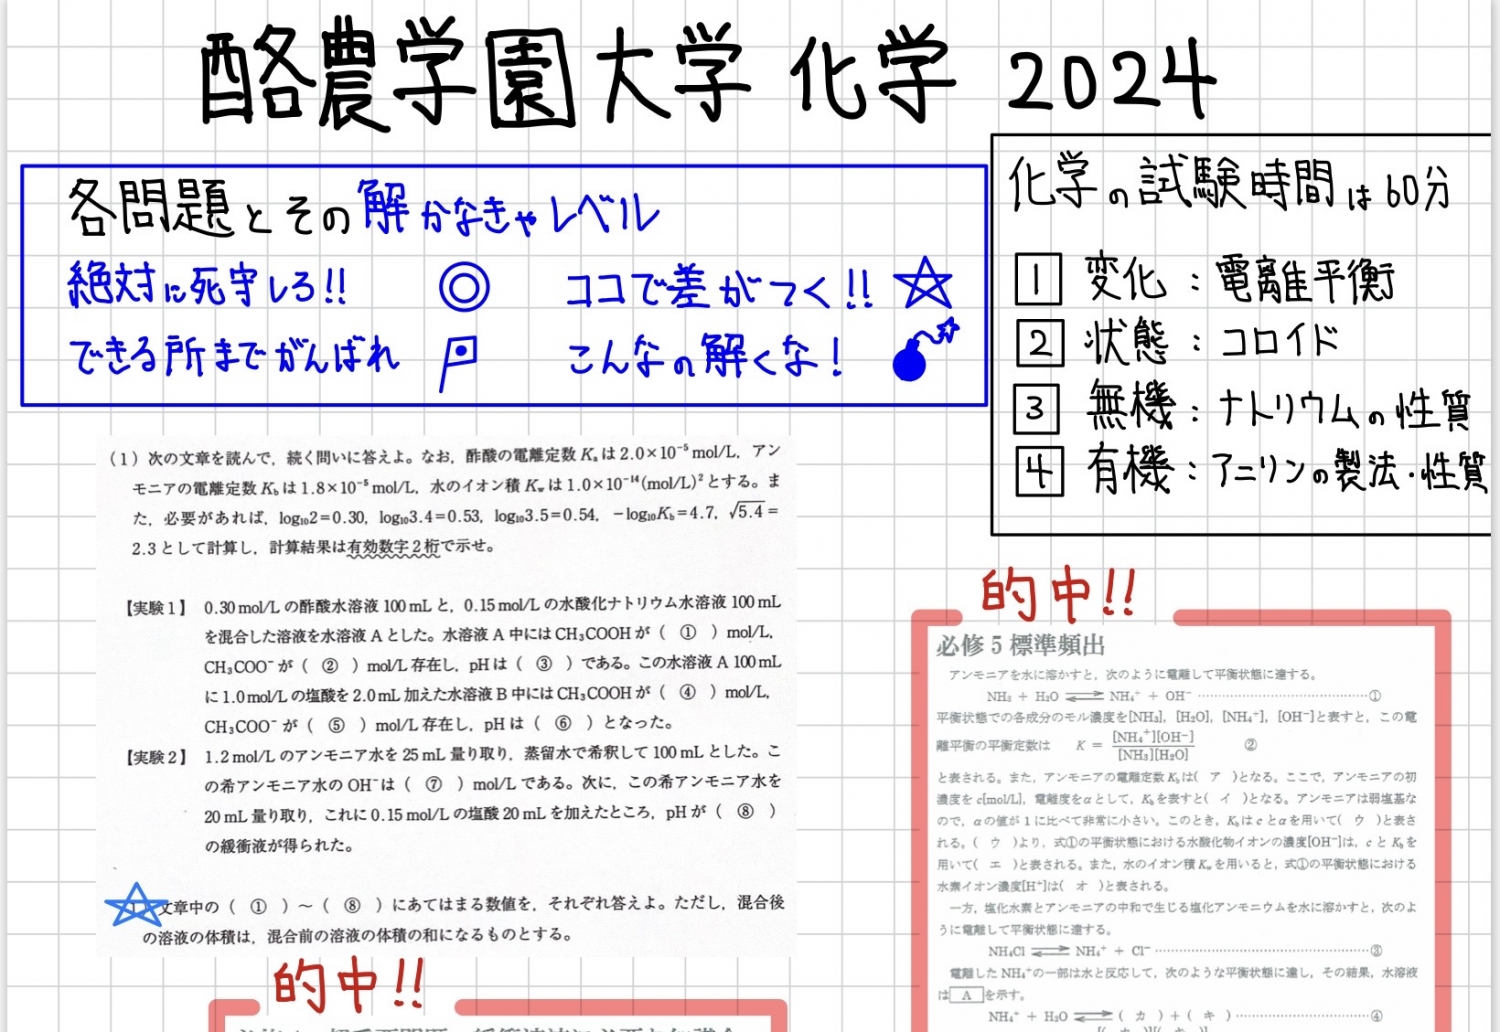 酪農学園大学 化学 2024
各問題とその解かなきゃレベル
絶対に死守しろ!! ◎ ココで差がつく!! ☆
できる所までがんばれ こんなの解くな!
化学の試験時間は60分
1 変化:電離平衡
2 状態:コロイド
3 無機:ナトリウムの性質
4 有機:アニリンの製法・性質
(1) 次の文章を読んで,続く問いに答えよ。なお,酢酸の電離定数 Kₐは 2.0×10⁻⁵ mol/L,アン
モニアの電離定数 K_bは 1.8×10⁻⁵ mol/L,水のイオン積 K_wは 1.0×10⁻¹⁴(mol/L)²とする。ま
た,必要があれば,log₁₀2=0.30,log₁₀3.4=0.53,log₁₀3.5=0.54,−log₁₀K_b=4.7,√5.4=
2.3として計算し,計算結果は有効数字2桁で示せ。
【実験1】 0.30 mol/L の酢酸水溶液 100 mL と,0.15 mol/L の水酸化ナトリウム水溶液 100 mL
を混合した溶液を水溶液 A とした。水溶液 A 中には CH₃COOH が( ① )mol/L,
CH₃COO⁻ が( ② )mol/L 存在し,pH は( ③ )である。この水溶液 A 100 mL
に 1.0 mol/L の塩酸を 2.0 mL 加えた水溶液 B 中には CH₃COOH が( ④ )mol/L,
CH₃COO⁻ が( ⑤ )mol/L 存在し,pH は( ⑥ )となった。
【実験2】 1.2 mol/L のアンモニア水を 25 mL 量り取り,蒸留水で希釈して 100 mL とした。こ
の希アンモニア水の OH⁻は( ⑦ )mol/L である。次に,この希アンモニア水を
20 mL 量り取り,これに 0.15 mol/L の塩酸 20 mL を加えたところ,pH が( ⑧ )
の緩衝液が得られた。
文章中の( ① )~( ⑧ )にあてはまる数値を,それぞれ答えよ。ただし,混合後
の溶液の体積は,混合前の溶液の体積の和になるものとする。
的中!!
的中!!
必修5 標準頻出
アンモニアを水に溶かすと,次のように電離して平衡状態に達する。
NH₃ + H₂O ⇄ NH₄⁺ + OH⁻ ……①
平衡状態での各成分のモル濃度を[NH₃],[H₂O],[NH₄⁺],[OH⁻]と表すと,この電
離平衡の平衡定数は K = [NH₄⁺][OH⁻] / [NH₃][H₂O] ②
と表される。また,アンモニアの電離定数 K_bは( ア )となる。ここで,アンモニアの初
濃度を c[mol/L],電離度をαとして,K_bを表すと( イ )となる。アンモニアは弱塩基な
ので,αの値が1に比べて非常に小さい。このとき,K_bは c とαを用いて( ウ )と表さ
れる。( ウ )より,式①の平衡状態における水酸化物イオンの濃度[OH⁻]は,c と K_bを
用いて( エ )と表される。また,水のイオン積 K_wを用いると,式①の平衡状態における
水素イオン濃度[H⁺]は( オ )と表される。
一方,塩化水素とアンモニアの中和で生じる塩化アンモニウムを水に溶かすと,次のよ
うに電離して平衡状態に達する。
NH₄Cl ⇄ NH₄⁺ + Cl⁻ ……③
電離した NH₄⁺の一部は水と反応して,次のような平衡状態に達し,その結果,水溶液
は A を示す。
NH₄⁺ + H₂O ⇄ ( カ ) + ( キ ) ……④